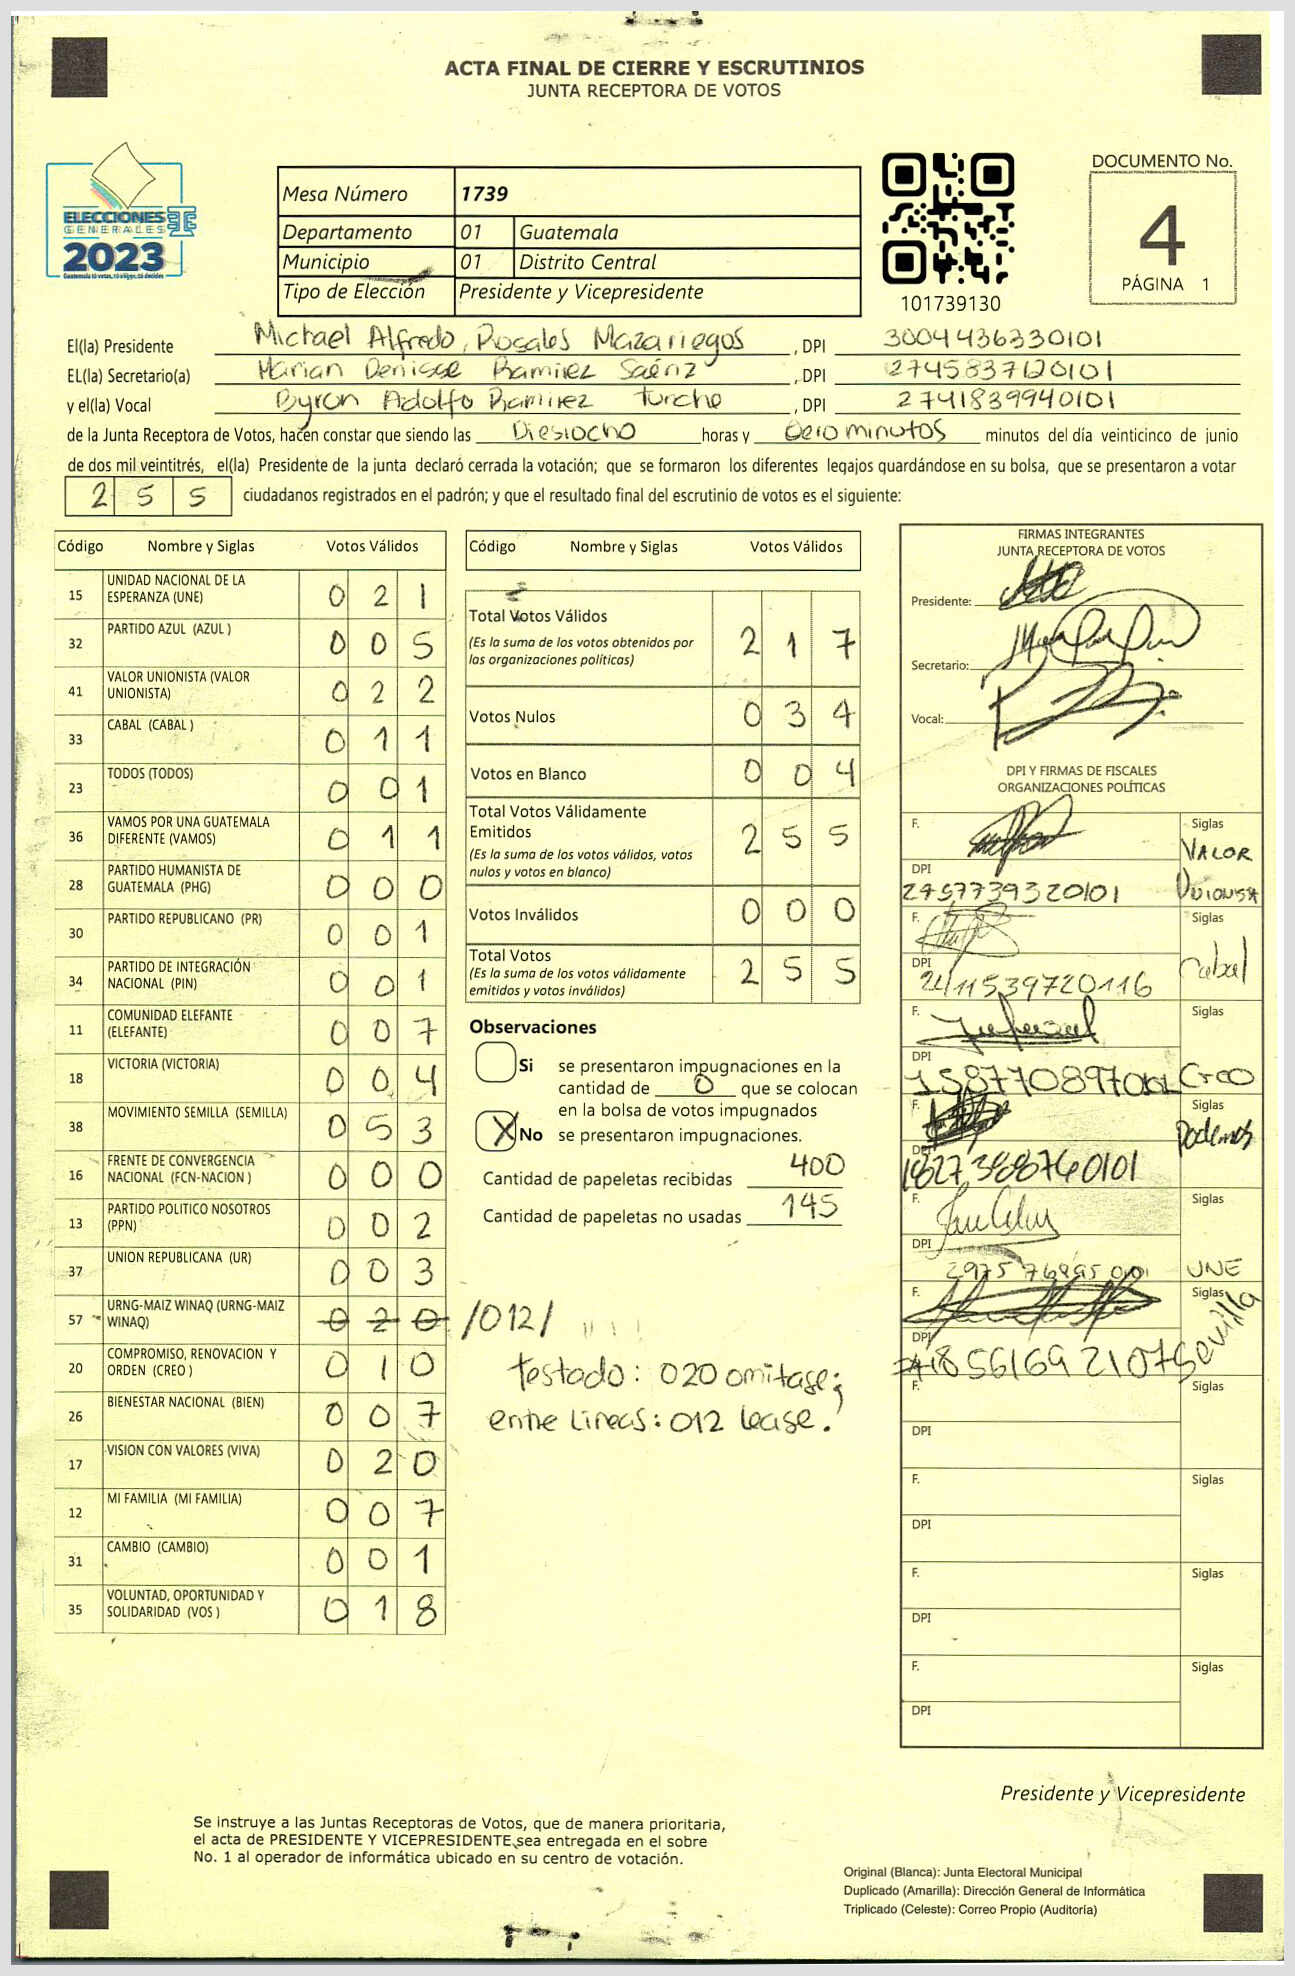 ACTA FINAL DE CIERRE Y ESCRUTINIOS
JUNTA RECEPTORA DE VOTOS
ELECCIONES
GENERALES
2023
Mesa Número 1739
Departamento 01 Guatemala
Municipio 01 Distrito Central
Tipo de Elección Presidente y Vicepresidente
101739130
DOCUMENTO No.
4
PÁGINA 1
El(la) Presidente Michael Alfredo, Rosales Mazariegos , DPI 3004436330101
EL(la) Secretario(a) Marian Denisse Ramirez Saénz , DPI 2745837120101
y el(la) Vocal Byron Adolfo Ramirez Turcho , DPI 2741839940101
de la Junta Receptora de Votos, hacen constar que siendo las Diesiocho horas y Cero minutos minutos del día veinticinco de junio
de dos mil veintitrés, el(la) Presidente de la junta declaró cerrada la votación; que se formaron los diferentes legajos quardándose en su bolsa, que se presentaron a votar
2 5 5 ciudadanos registrados en el padrón; y que el resultado final del escrutinio de votos es el siguiente:
Código Nombre y Siglas Votos Válidos
15 UNIDAD NACIONAL DE LA ESPERANZA (UNE) 0 2 1
32 PARTIDO AZUL (AZUL ) 0 0 5
41 VALOR UNIONISTA (VALOR UNIONISTA) 0 2 2
33 CABAL (CABAL ) 0 1 1
23 TODOS (TODOS) 0 0 1
36 VAMOS POR UNA GUATEMALA DIFERENTE (VAMOS) 0 1 1
28 PARTIDO HUMANISTA DE GUATEMALA (PHG) 0 0 0
30 PARTIDO REPUBLICANO (PR) 0 0 1
34 PARTIDO DE INTEGRACIÓN NACIONAL (PIN) 0 0 1
11 COMUNIDAD ELEFANTE (ELEFANTE) 0 0 7
18 VICTORIA (VICTORIA) 0 0 4
38 MOVIMIENTO SEMILLA (SEMILLA) 0 5 3
16 FRENTE DE CONVERGENCIA NACIONAL (FCN-NACION ) 0 0 0
13 PARTIDO POLITICO NOSOTROS (PPN) 0 0 2
37 UNION REPUBLICANA (UR) 0 0 3
57 URNG-MAIZ WINAQ (URNG-MAIZ WINAQ) 0 2 0 /012/
20 COMPROMISO, RENOVACION Y ORDEN (CREO ) 0 1 0
26 BIENESTAR NACIONAL (BIEN) 0 0 7
17 VISION CON VALORES (VIVA) 0 2 0
12 MI FAMILIA (MI FAMILIA) 0 0 7
31 CAMBIO (CAMBIO) 0 0 1
35 VOLUNTAD, OPORTUNIDAD Y SOLIDARIDAD (VOS ) 0 1 8
Código Nombre y Siglas Votos Válidos
Total Votos Válidos 2 1 7
(Es la suma de los votos obtenidos por
las organizaciones políticas)
Votos Nulos 0 3 4
Votos en Blanco 0 0 4
Total Votos Válidamente
Emitidos 2 5 5
(Es la suma de los votos válidos, votos
nulos y votos en blanco)
Votos Inválidos 0 0 0
Total Votos 2 5 5
(Es la suma de los votos válidamente
emitidos y votos inválidos)
Observaciones
Si se presentaron impugnaciones en la
cantidad de 0 que se colocan
en la bolsa de votos impugnados
X No se presentaron impugnaciones.
Cantidad de papeletas recibidas 400
Cantidad de papeletas no usadas 145
Testado: 020 omitase;
entre Lineas: 012 lease.
FIRMAS INTEGRANTES
JUNTA RECEPTORA DE VOTOS
Presidente:
Secretario:
Vocal:
DPI Y FIRMAS DE FISCALES
ORGANIZACIONES POLÍTICAS
F. Siglas VALOR Unionista
DPI 2757739320101
F. Siglas Cabal
DPI 2411539720116
F. Siglas Creo
DPI
F. Siglas Podemos
DPI 1827388760101
F. Siglas UNE
DPI
F. Siglas
DPI
F. Siglas
DPI
F. Siglas
DPI
F. Siglas
DPI
F. Siglas
DPI
Presidente y Vicepresidente
Se instruye a las Juntas Receptoras de Votos, que de manera prioritaria,
el acta de PRESIDENTE Y VICEPRESIDENTE sea entregada en el sobre
No. 1 al operador de informática ubicado en su centro de votación.
Original (Blanca): Junta Electoral Municipal
Duplicado (Amarilla): Dirección General de Informática
Triplicado (Celeste): Correo Propio (Auditoria)